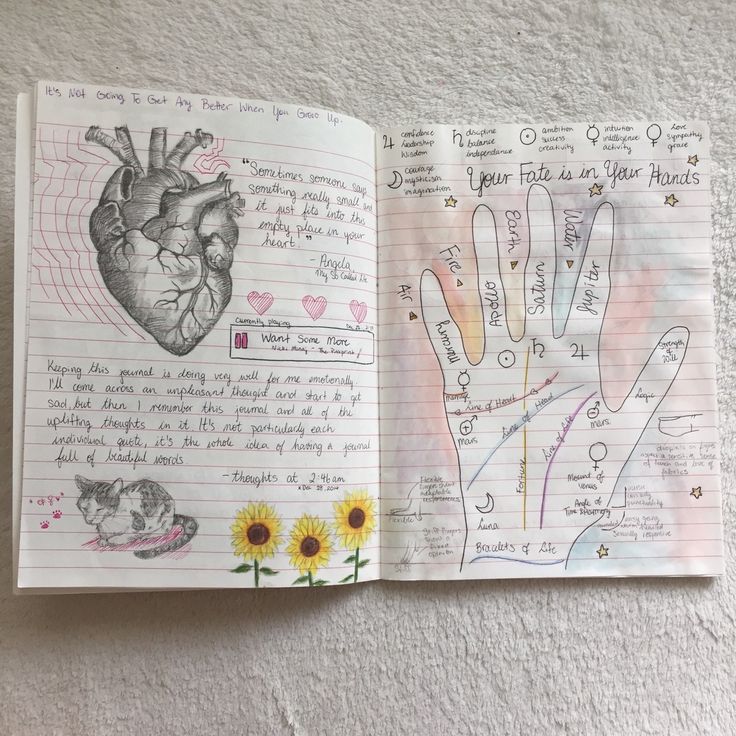 It's Not Going To Get Any Better When You Grow Up.
"Sometimes someone says
something really small and
it just fits into this
empty place in your
heart."
- Angela,
My So Called Life
Currently playing
Want Some More
Nicki Minaj - The Pinkprint
Keeping this journal is doing very well for me emotionally.
I'll come across an unpleasant thought and start to get
sad, but then I remember this journal and all of the
uplifting thoughts in it. It's not particularly each
individual quote, it's the whole idea of having a journal
full of beautiful words.
- thoughts at 2:46am
Dec 28, 2014
♃ confidence
leadership
wisdom
♄ discipline
balance
independance
☉ ambition
success
creativity
☿ intuition
intelligence
activity
♀ love
sympathy
grace
☽ courage
mysticism
imagination
Your Fate is in Your Hands
Air
Fire
Earth
Water
Mercury
Apollo
Saturn
Jupiter
☿
☉
♄
♃
Strength
of Will
Logic
Line of Heart
Line of Head
Line of Life
Fortune
Mars
Mars
Mound of
Venus
Angle of
Luna
Bracelets of Life
Flexible
fingers show
Flexible
stiff fingers
show a
opinion
Stiff
droplets on
a sensitive sense
of touch and love of
fabrics
easy going